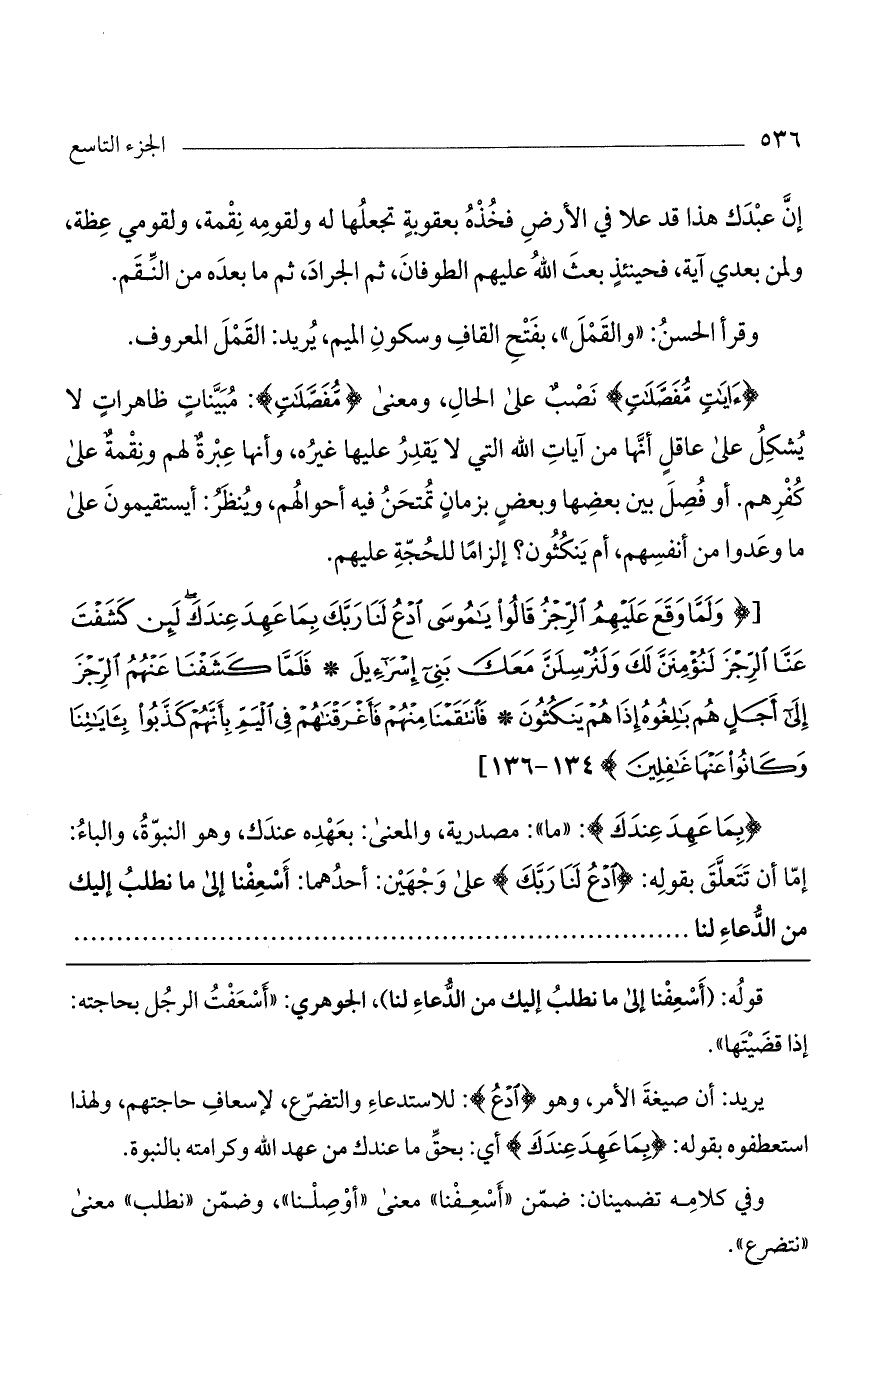 ٥٣٦ الجزء التاسع
إنَّ عبْدَك هذا قد علا في الأرضِ فخُذْهُ بعقوبةٍ تجعلُها له ولقومِه نِقْمة، ولقومي عِظة،
ولمن بعدي آية، فحينئذٍ بعثَ اللهُ عليهم الطوفانَ، ثم الجرادَ، ثم ما بعدَه من النِّقَم.
وقرأ الحسنُ: «والقَمْلَ»، بفَتْحِ القافِ وسكونِ الميم، يُريد: القَمْلَ المعروف.
﴿ءَايَٰتٍ مُّفَصَّلَٰتٍ﴾ نَصْبٌ علىٰ الحال، ومعنىٰ ﴿مُّفَصَّلَٰتٍ﴾: مُبَيَّناتٍ ظاهراتٍ لا
يُشكِلُ علىٰ عاقلٍ أنَّها من آياتِ الله التي لا يَقدِرُ عليها غيرُه، وأنها عِبْرةٌ لهم ونِقْمةٌ علىٰ
كُفْرِهم. أو فُصِلَ بين بعضِها وبعضٍ بزمانٍ تُمتحَنُ فيه أحوالُهم، ويُنظَرُ: أيستقيمونَ علىٰ
ما وعَدوا من أنفسِهم، أم يَنكُثُون؟ إلزامًا للحُجّةِ عليهم.
[﴿وَلَمَّا وَقَعَ عَلَيْهِمُ ٱلرِّجْزُ قَالُوا۟ يَٰمُوسَى ٱدْعُ لَنَا رَبَّكَ بِمَا عَهِدَ عِندَكَ ۖ لَئِن كَشَفْتَ
عَنَّا ٱلرِّجْزَ لَنُؤْمِنَنَّ لَكَ وَلَنُرْسِلَنَّ مَعَكَ بَنِىٓ إِسْرَٰٓءِيلَ * فَلَمَّا كَشَفْنَا عَنْهُمُ ٱلرِّجْزَ
إِلَىٰٓ أَجَلٍ هُم بَٰلِغُوهُ إِذَا هُمْ يَنكُثُونَ * فَٱنتَقَمْنَا مِنْهُمْ فَأَغْرَقْنَٰهُمْ فِى ٱلْيَمِّ بِأَنَّهُمْ كَذَّبُوا۟ بِـَٔايَٰتِنَا
وَكَانُوا۟ عَنْهَا غَٰفِلِينَ﴾ ١٣٤-١٣٦]
﴿بِمَا عَهِدَ عِندَكَ﴾: «ما»: مصدرية، والمعنىٰ: بعَهْدِه عندَك، وهو النبوّةُ، والباءُ:
إمّا أن تَتَعلَّقَ بقولِه: ﴿ٱدْعُ لَنَا رَبَّكَ﴾ علىٰ وَجْهَيْن: أحدُهما: أَسْعِفْنا إلىٰ ما نطلبُ إليك
من الدُّعاءِ لنا ........................................................................
قولُه: (أَسْعِفْنا إلىٰ ما نطلبُ إليك من الدُّعاءِ لنا)، الجوهري: «أَسْعَفْتُ الرجُل بحاجته:
إذا قضَيْتَها».
يريد: أن صيغةَ الأمر، وهو ﴿ٱدْعُ﴾: للاستدعاءِ والتضرّع، لإسعافِ حاجتهم، ولهذا
استعطفوه بقوله: ﴿بِمَا عَهِدَ عِندَكَ﴾ أي: بحقِّ ما عندك من عهد الله وكرامته بالنبوة.
وفي كلامِـه تضمينان: ضمّن «أَسْعِـفْنا» معنىٰ «أوْصِلْـنا»، وضمّن «نطلب» معنىٰ
«نتضرع».